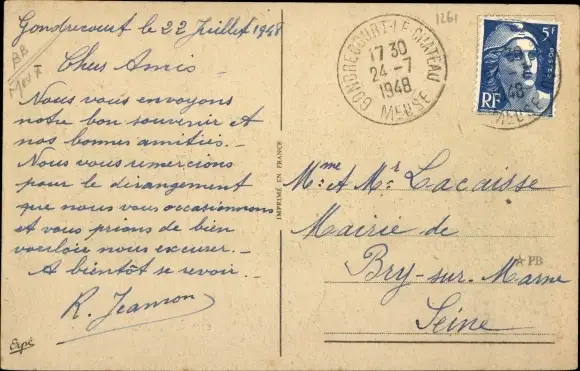 Gondrecourt le 22 Juillet 1948
BB
Chers Amis
Nous vous envoyons
notre bon souvenir et
nos bonnes amitiés.-
Nous vous remercions
pour le dérangement
que nous vous occasionnons
et vous prions de bien
vouloir nous excuser.-
A bientôt se revoir.-
R. Jeannon
IMPRIMÉ EN FRANCE
1261
GONDRECOURT-LE-CHATEAU
17 30
24-7
1948
MEUSE
5F
POSTES
RF
48
MEUSE
Mme et Mr Lacaisse
Mairie de
PB
Bry-sur-Marne
Seine